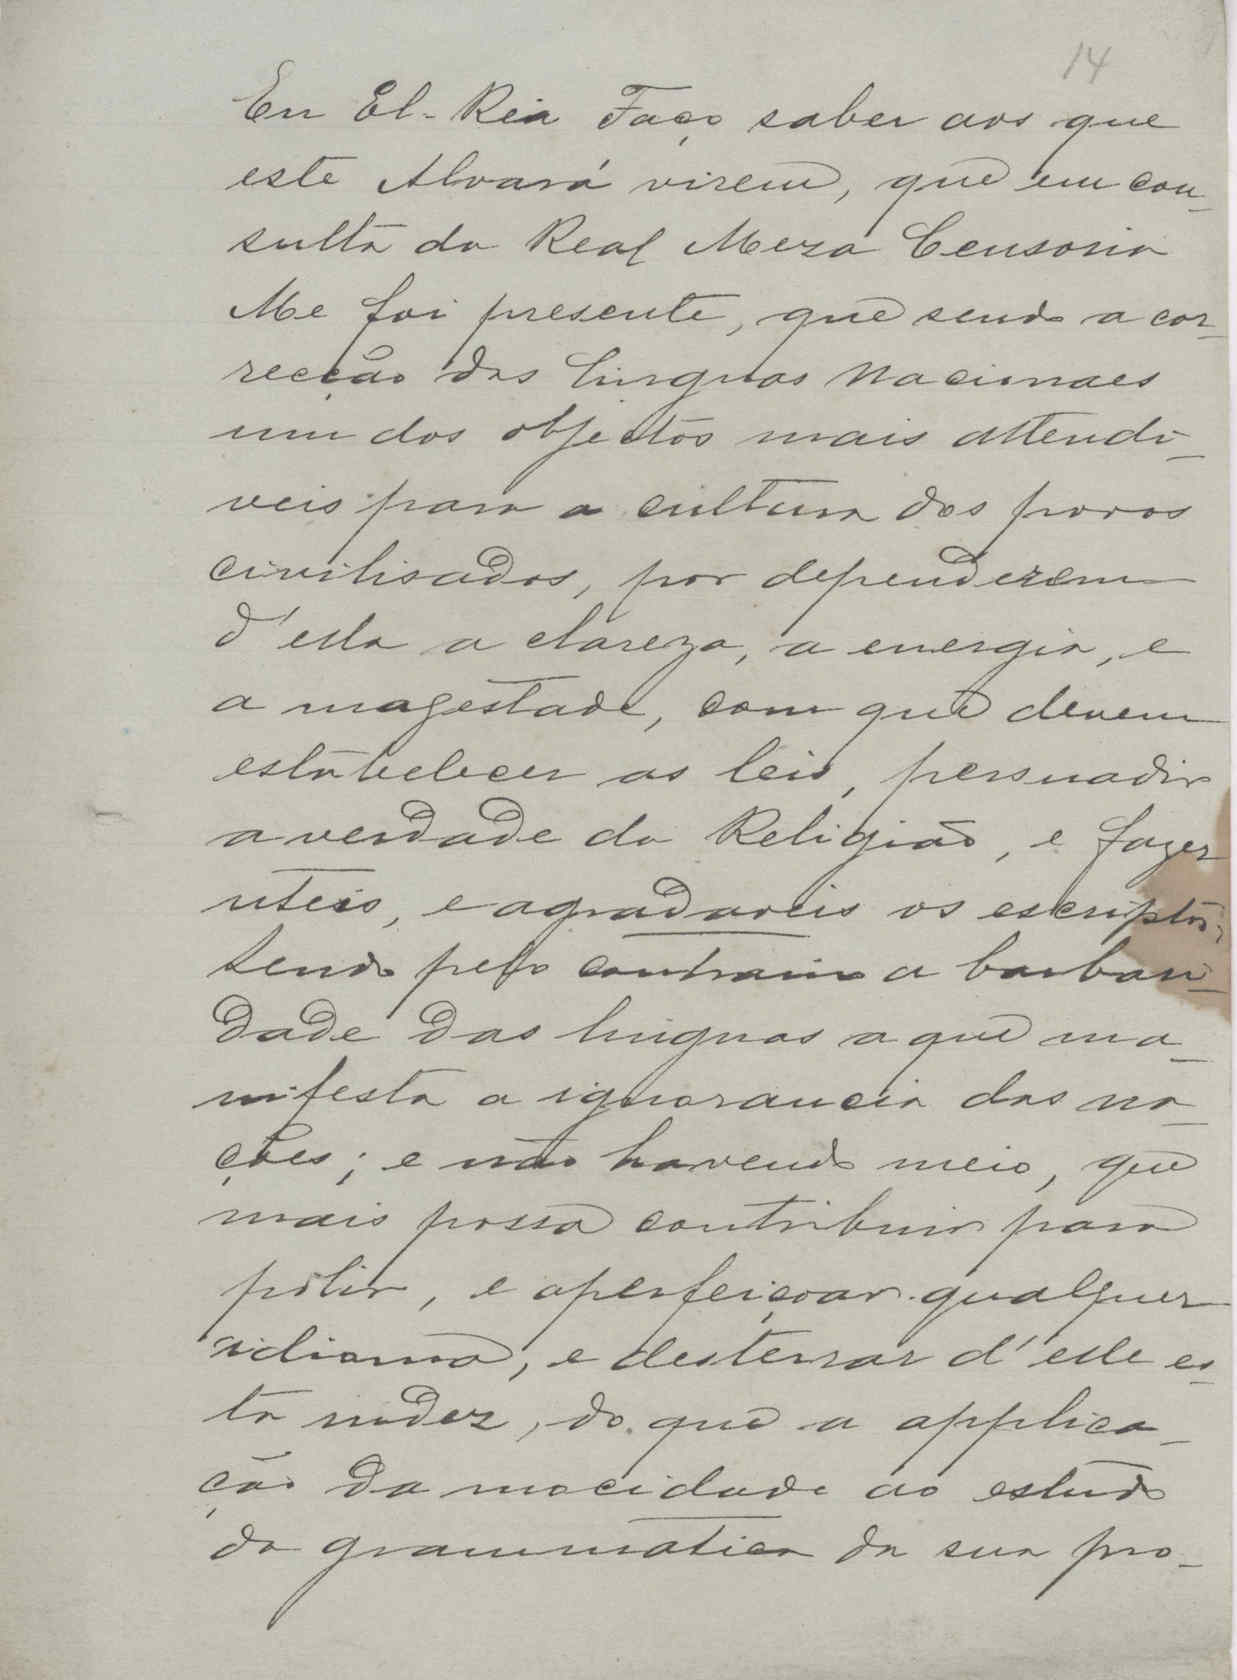 14
Eu El-Rei Faço saber aos que
este Alvará virem, que em con-
sulta da Real Meza Censoria
Me foi presente, que sendo a cor-
recção das linguas Nacionaes
um dos objectos mais attendi-
veis para a cultura dos povos
civilisados, por dependerem
d'ella a clareza, a energia, e
a magestade, com que devem
estabelecer as leis, persuadir
a verdade da Religião, e fazer
uteis, e agradaveis os escriptos,
sendo pelo contrario a barbari-
dade das linguas a que ma-
nifesta a ignorancia das na-
ções; e não havendo meio, que
mais possa contribuir para
polir, e aperfeiçoar qualquer
idioma, e desterrar d'elle es-
ta rudez, do que a applica-
ção da mocidade ao estudo
da grammatica da sua pro-